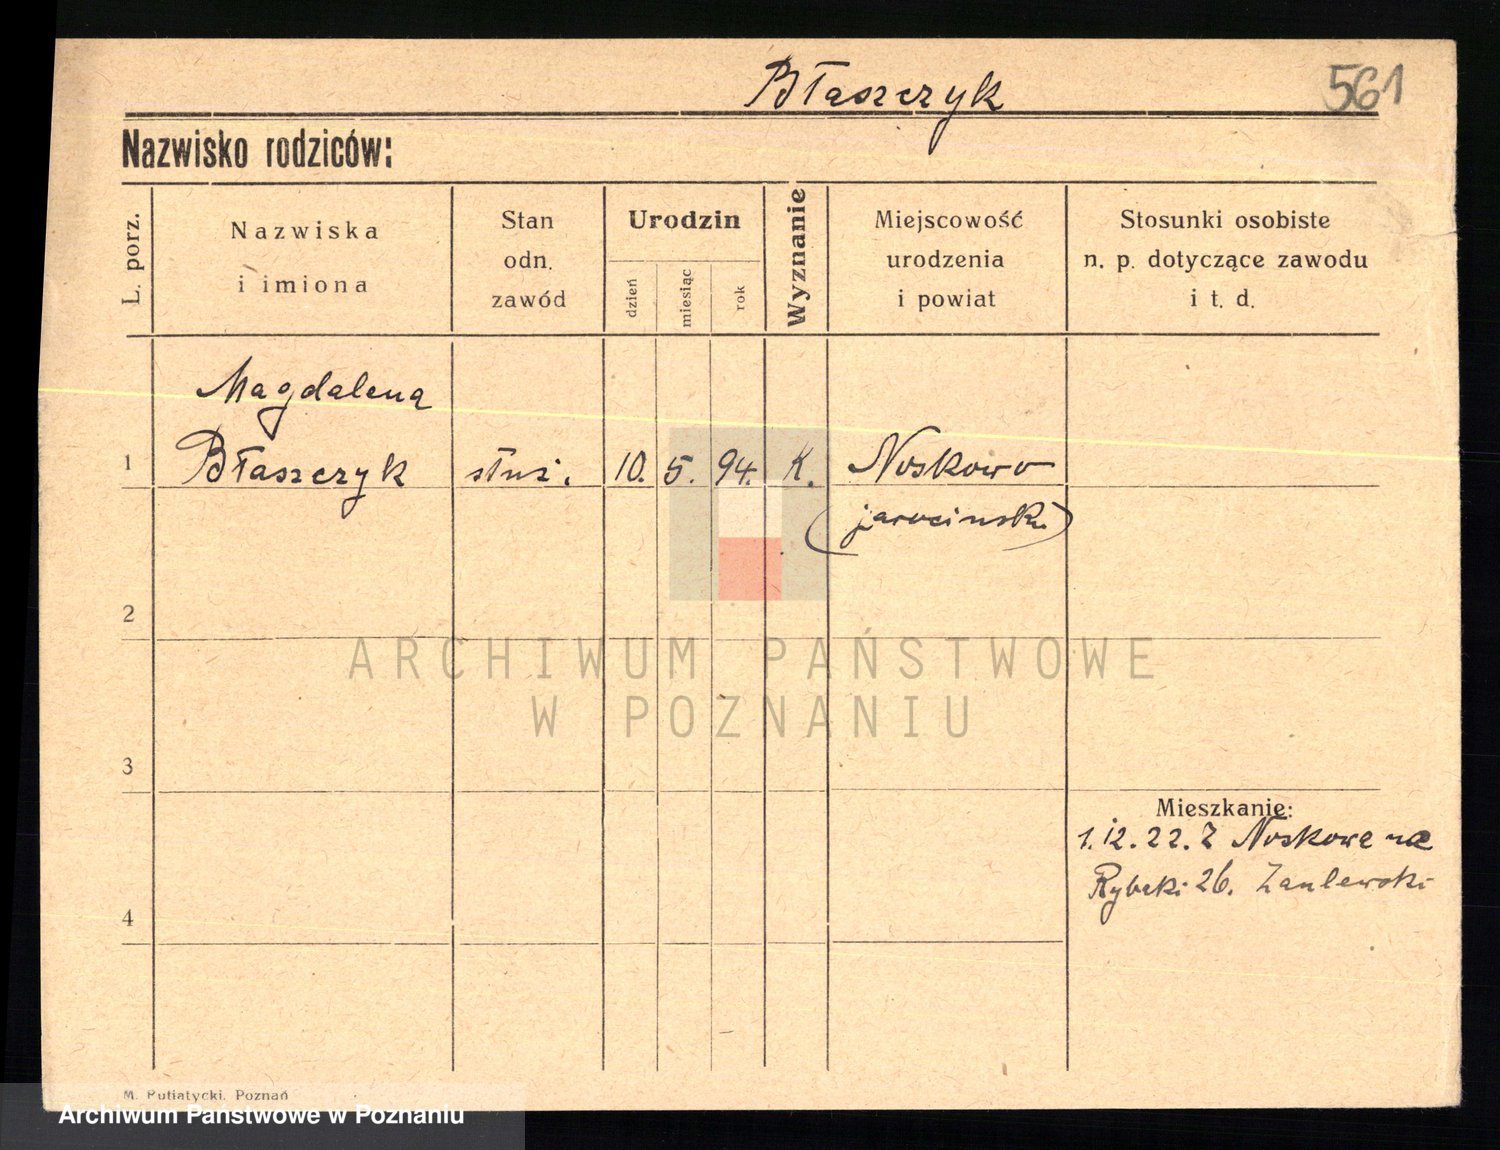 Błaszczyk
561
Nazwisko rodziców:
L. porz.
Nazwiska
i imiona
Stan
odn.
zawód
Urodzin
dzień
miesiąc
rok
Wyznanie
Miejscowość
urodzenia
i powiat
Stosunki osobiste
n. p. dotyczące zawodu
i t. d.
Magdalena
1 Błaszczyk służ. 10. 5. 94. K. Noskowo
(jarocinski)
2
ARCHIWUM PAŃSTWOWE
W POZNANIU
3
Mieszkanie:
1.12.22. Z Noskowa na
Rybaki 26.
4
M. Putiatycki. Poznań
Archiwum Państwowe w Poznaniu